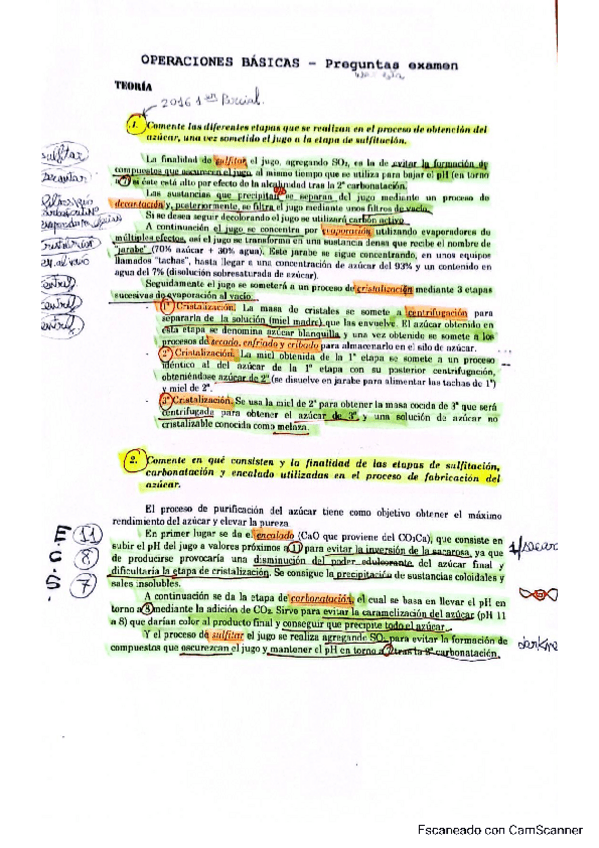 OPERACIONES BÁSICAS – Preguntas examen
TEORÍA
2016 1er Parcial.
1. Comente las diferentes etapas que se realizan en el proceso de obtención del
azúcar, una vez sometido el jugo a la etapa de sulfitación.
La finalidad de sulfitar el jugo, agregando SO₂, es la de evitar la formación de
compuestos que oscurecen el jugo, al mismo tiempo que se utiliza para bajar el pH (en torno
7) si éste está alto por efecto de la alcalinidad tras la 2ª carbonatación.
Las sustancias que precipitan se separan del jugo mediante un proceso de
decantación y, posteriormente, se filtra el jugo mediante unos filtros de vacío.
Si se desea seguir decolorando el jugo se utilizará carbón activo.
A continuación el jugo se concentra por evaporación utilizando evaporadores de
múltiples efectos, así el jugo se transforma en una sustancia densa que recibe el nombre de
"jarabe" (70% azúcar + 30% agua). Este jarabe se sigue concentrando, en unos equipos
llamados "tachas", hasta llegar a una concentración de azúcar del 93% y un contenido en
agua del 7% (disolución sobresaturada de azúcar).
Seguidamente el jugo se someterá a un proceso de cristalización mediante 3 etapas
sucesivas de evaporación al vacío.
1ª Cristalización. La masa de cristales se somete a centrifugación para
separarla de la solución (miel madre) que las envuelve. El azúcar obtenido en
esta etapa se denomina azúcar blanquilla y una vez obtenido se somete a los
procesos de secado, enfriado y cribado para almacenarlo en el silo de azúcar.
2ª Cristalización. La miel obtenida de la 1ª etapa se somete a un proceso
idéntico al del azúcar de la 1ª etapa con su posterior centrifugación,
obteniéndose azúcar de 2ª (se disuelve en jarabe para alimentar las tachas de 1ª)
y miel de 2ª.
3ª Cristalización. Se usa la miel de 2ª para obtener la masa cocida de 3ª que será
centrifugada para obtener el azúcar de 3ª, y una solución de azúcar no
cristalizable conocida como melaza.
2. Comente en qué consisten y la finalidad de las etapas de sulfitación,
carbonatación y encalado utilizadas en el proceso de fabricación del
azúcar.
El proceso de purificación del azúcar tiene como objetivo obtener el máximo
rendimiento del azúcar y elevar la pureza.
En primer lugar se da el encalado (CaO que proviene del CO₃Ca), que consiste en
subir el pH del jugo a valores próximos a 11 para evitar la inversión de la sacarosa, ya que
de producirse provocaría una disminución del poder edulcorante del azúcar final y
dificultaría la etapa de cristalización. Se consigue la precipitación de sustancias coloidales y
sales insolubles.
A continuación se da la etapa de carbonatación, el cual se basa en llevar el pH en
torno a 8 mediante la adición de CO₂. Sirve para evitar la caramelización del azúcar (pH 11
a 8) que darían color al producto final y conseguir que precipite todo el azúcar.
Y el proceso de sulfitar el jugo se realiza agregando SO₂ para evitar la formación de
compuestos que oscurezcan el jugo y mantener el pH en torno a 7 tras la 2ª carbonatación.
11
8
7
Escaneado con CamScanner